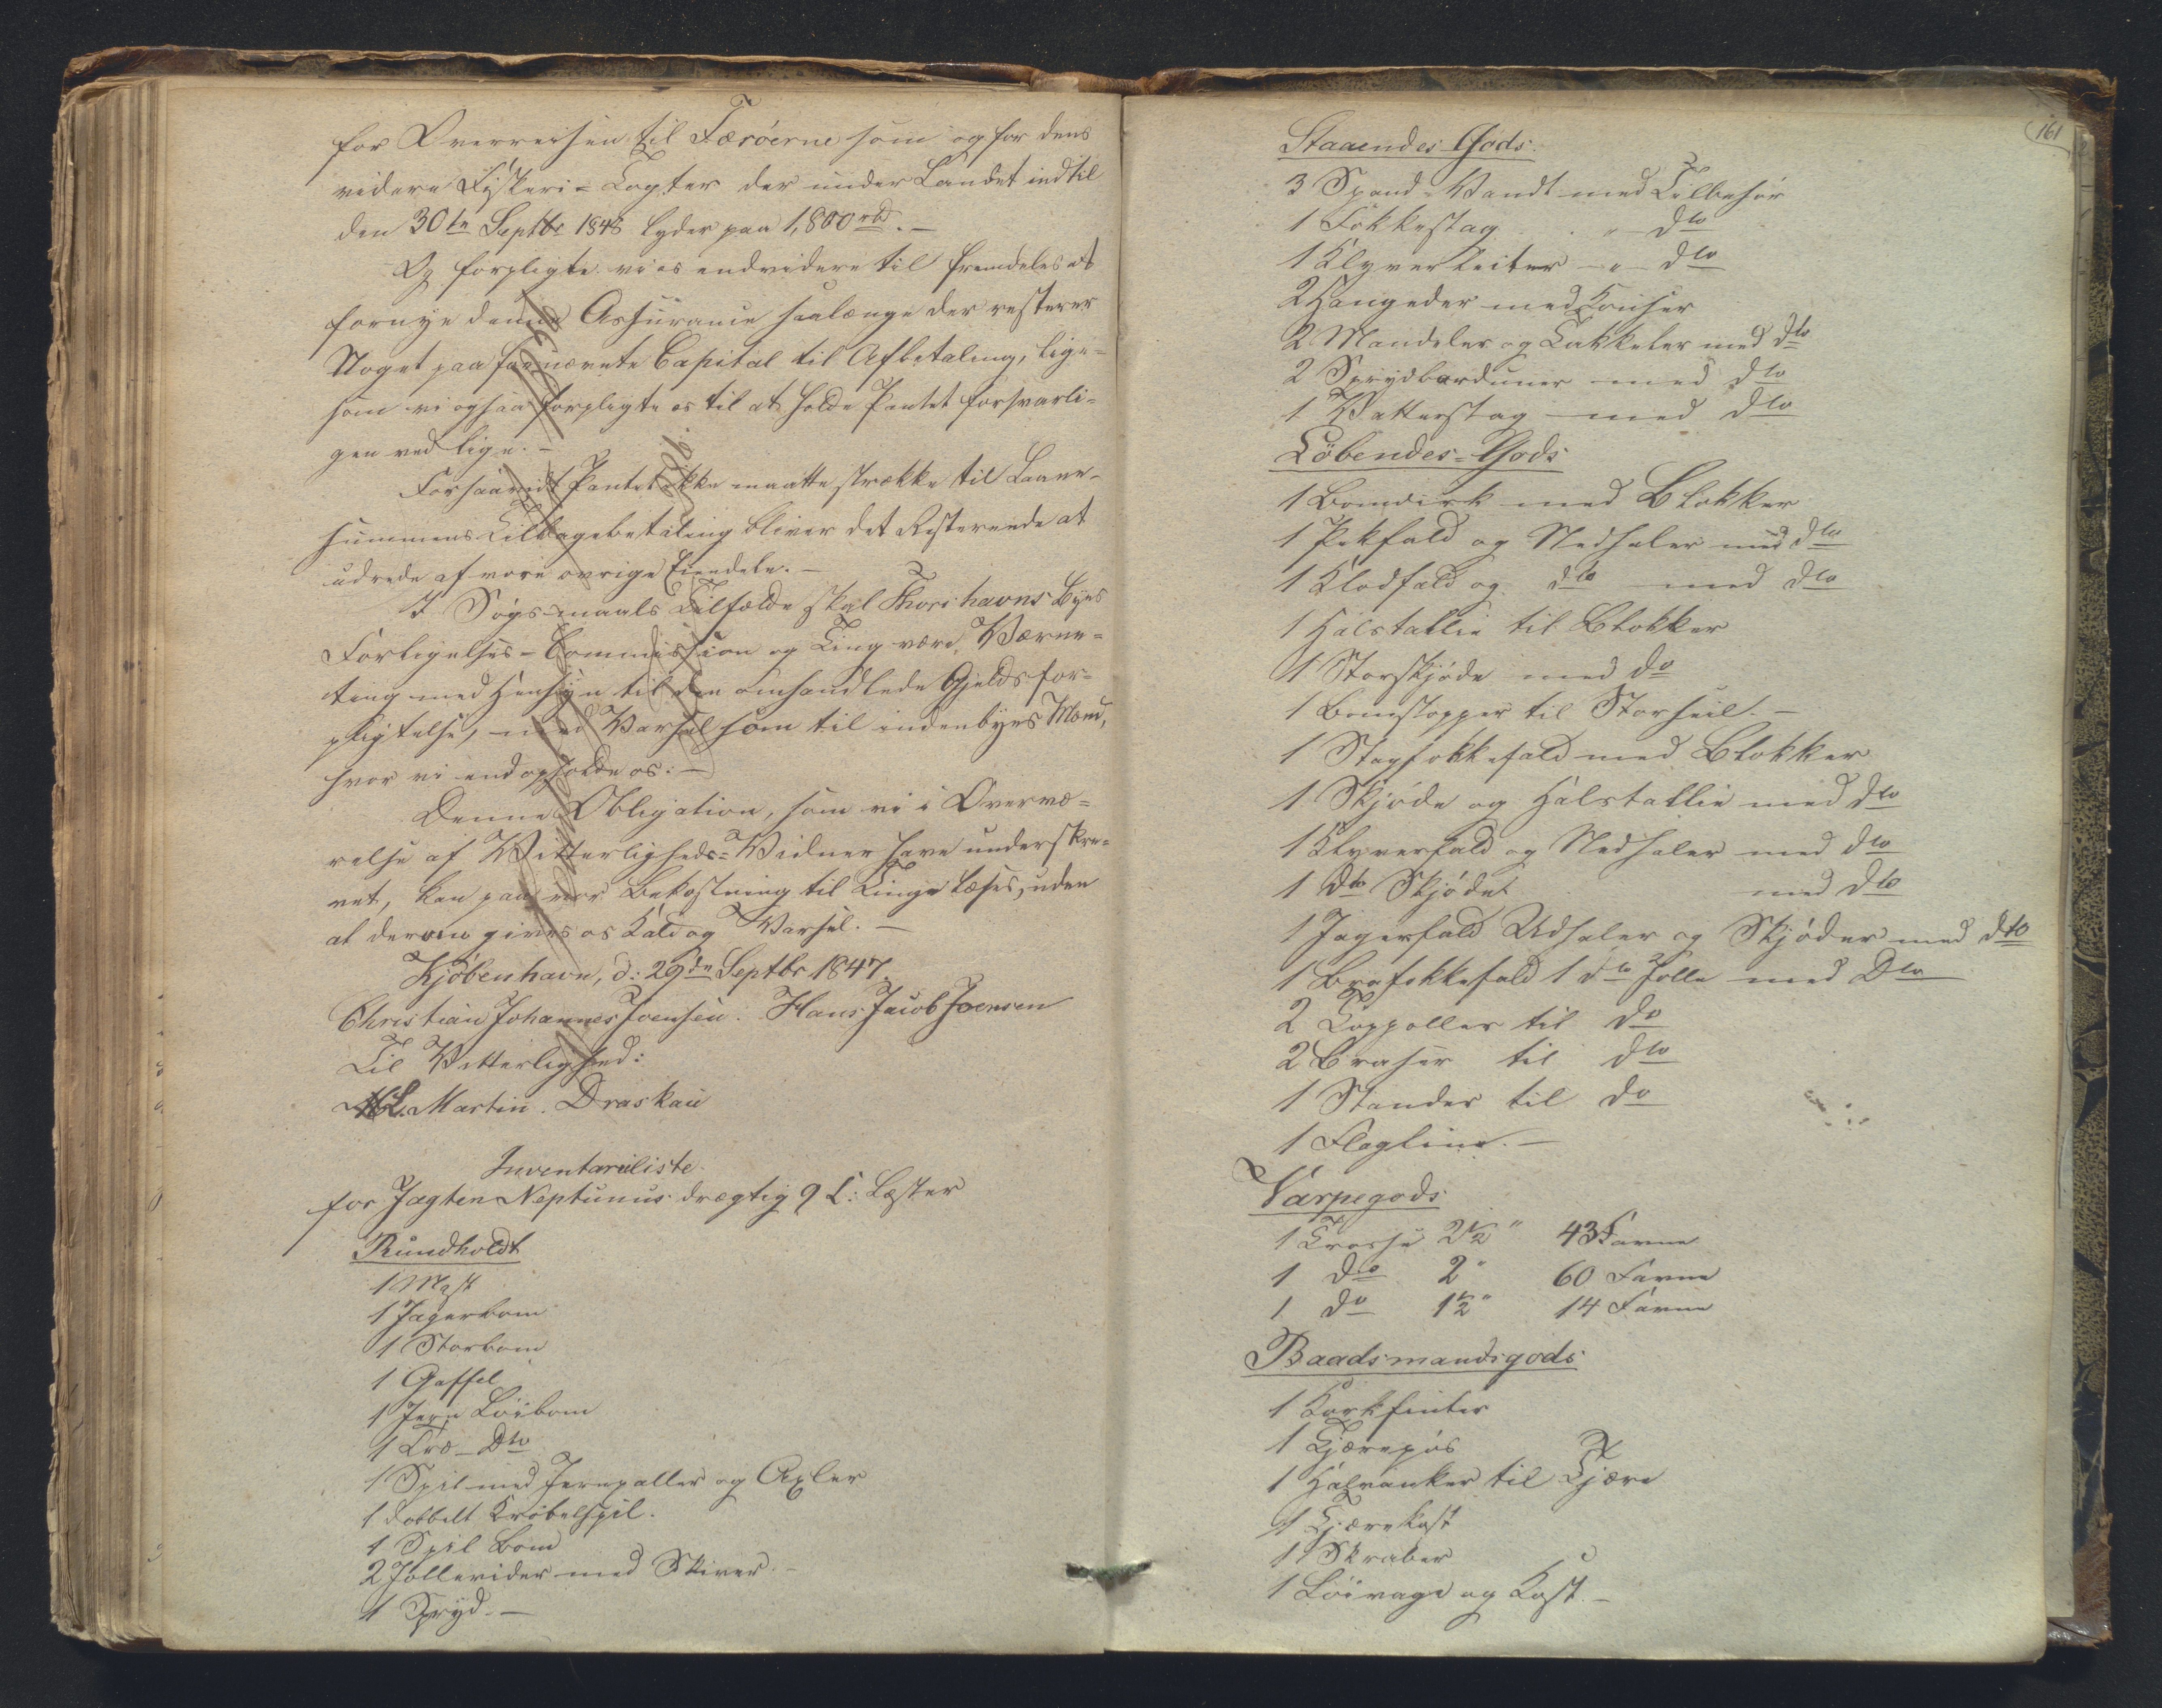 for Overreisen til Færöerne som og for dens
videre Fiskeri-Togter der under Landet indtil
den 30te Septbr 1848 lyder paa 1,800 rbd. —
Og forpligte vi os endvidere til fremdeles at
fornye denne Assurance saalænge der resterer
Noget paa fornævnte Capital til Afbetaling, lige-
som vi ogsaa forpligte os til at holde Pantet forsvarli-
gen ved lige. —
Forsaavidt Pantet ikke maatte strække til Laane-
summens Tilbagebetaling bliver det Resterende at
udrede af vore øvrige Eiendele. —
I Søgsmaals Tilfælde skal Thorshavns Byes
Forligelses-Commission og Ting være Værne-
ting med Hensyn til den omhandlede Gjelds for-
pligtelse, med Varsel som til indenbyes Mænd,
hvor vi end opholde os: —
Denne Obligation, som vi i Overvæ-
relse af Vitterligheds-Vidner have underskre-
vet, kan paa vor Bekostning til Tinge læses, uden
at derom gives os Kald og Varsel. —
Kjöbenhavn, d: 29de Septbr 1847.
Christian Johannes Joensen. Hans Jacob Joensen
Til Vitterlighed:
Martin. Draskau
Inventariiliste
for Jagten Neptunus drægtig 9 C: Læster
Rundholdt
1 Mast
1 Jagerbom
1 Storbom
1 Gaffel
1 Jern Löibom
1 Træ- Dto
1 Spil med Jernpaller og Axler
1 dobbelt Bröbelspil.
1 Spil Bom
2 Jollerider med Skiver. —
1 Spryd. —
161
Staaendes Gods:
3 Spand-Vandt med Tilbehør
1 Fokkestag . . " dto
1 Klyverleiter — " — dto
2 Hangeder med Kouser
2 Mandeler og Takkeler med dto
2 Sprydbarduner med dto
1 Vatterstag med dto
Löbendes-Gods
1 Bomdirk med Blokker
1 Pikfald og Nedhaler med dto
1 Klodfald og dto med dto
1 Halstallie til Blokker
1 Storskjøde med do
1 Bomstopper til Storseil. —
1 Stagfokkefald med Blokker
1 Skjøde og Halstallie med dto
1 Klyverfald og Nedhaler med dto
1 dto Skjødet med dto
1 Jagerfald Udhaler og Skjøder med dto
1 Brafokkefald 1 dto Jolle med Dto
2 Toppaller til do
2 Braser til dto
1 Stander til do
1 Flagline. —
Varpegods
1 Trosse 2½" 43 Favne
1 do 2" 60 Favne
1 do 1½" 14 Favne
Baadsmandsgods
1 Korkfinter
1 Tjærepøs
1 Halvanker til Tjære
1 Tjærekost
1 Skraber
1 Löivage og Kost. —